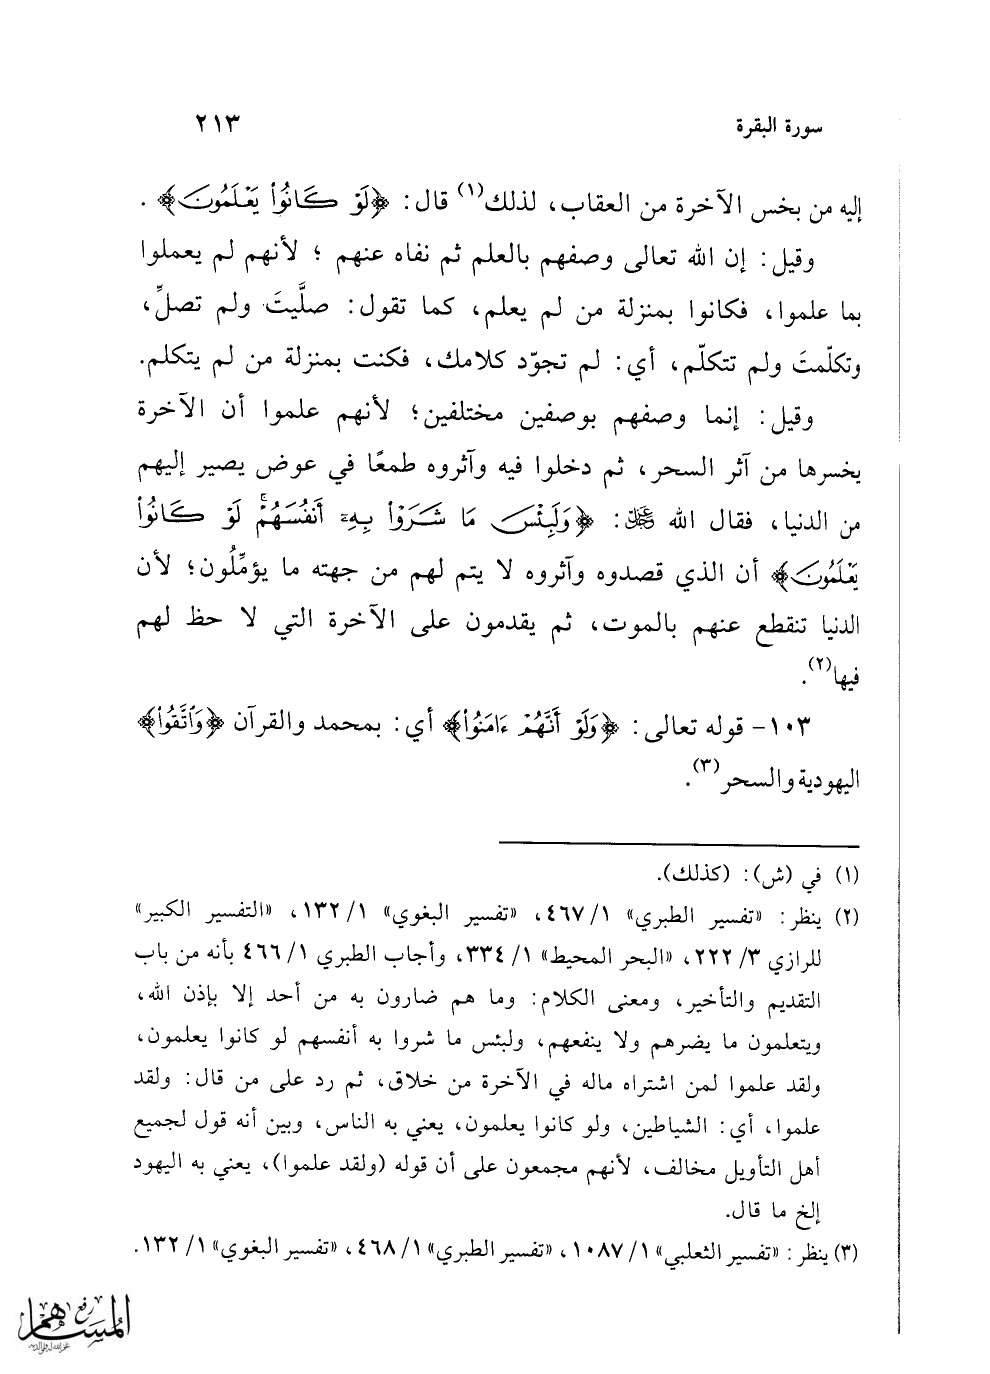 سورة البقرة ٢١٣
إليه من بخس الآخرة من العقاب، لذلك(١) قال: ﴿لَوْ كَانُوا۟ يَعْلَمُونَ﴾ .
وقيل: إن الله تعالى وصفهم بالعلم ثم نفاه عنهم ؛ لأنهم لم يعملوا
بما علموا، فكانوا بمنزلة من لم يعلم، كما تقول: صلَّيتَ ولم تصلِّ،
وتكلّمتَ ولم تتكلّم، أي: لم تجوّد كلامك، فكنت بمنزلة من لم يتكلم.
وقيل: إنما وصفهم بوصفين مختلفين؛ لأنهم علموا أن الآخرة
يخسرها من آثر السحر، ثم دخلوا فيه وآثروه طمعًا في عوض يصير إليهم
من الدنيا، فقال الله ﷻ: ﴿وَلَبِئْسَ مَا شَرَوْا۟ بِهِۦٓ أَنفُسَهُمْ ۚ لَوْ كَانُوا۟
يَعْلَمُونَ﴾ أن الذي قصدوه وآثروه لا يتم لهم من جهته ما يؤمِّلُون؛ لأن
الدنيا تنقطع عنهم بالموت، ثم يقدمون على الآخرة التي لا حظ لهم
فيها(٢).
١٠٣- قوله تعالى: ﴿وَلَوْ أَنَّهُمْ ءَامَنُوا۟﴾ أي: بمحمد والقرآن ﴿وَٱتَّقَوْا۟﴾
اليهودية والسحر(٣).
(١) في (ش): (كذلك).
(٢) ينظر: «تفسير الطبري» ١/ ٤٦٧، «تفسير البغوي» ١/ ١٣٢، «التفسير الكبير»
للرازي ٣/ ٢٢٢، «البحر المحيط» ١/ ٣٣٤، وأجاب الطبري ١/ ٤٦٦ بأنه من باب
التقديم والتأخير، ومعنى الكلام: وما هم ضارون به من أحد إلا بإذن الله،
ويتعلمون ما يضرهم ولا ينفعهم، ولبئس ما شروا به أنفسهم لو كانوا يعلمون،
ولقد علموا لمن اشتراه ماله في الآخرة من خلاق، ثم رد على من قال: ولقد
علموا، أي: الشياطين، ولو كانوا يعلمون، يعني به الناس، وبين أنه قول لجميع
أهل التأويل مخالف، لأنهم مجمعون على أن قوله (ولقد علموا)، يعني به اليهود
إلخ ما قال.
(٣) ينظر: «تفسير الثعلبي» ١/ ١٠٨٧، «تفسير الطبري» ١/ ٤٦٨، «تفسير البغوي» ١/ ١٣٢.
رفع
المساهم